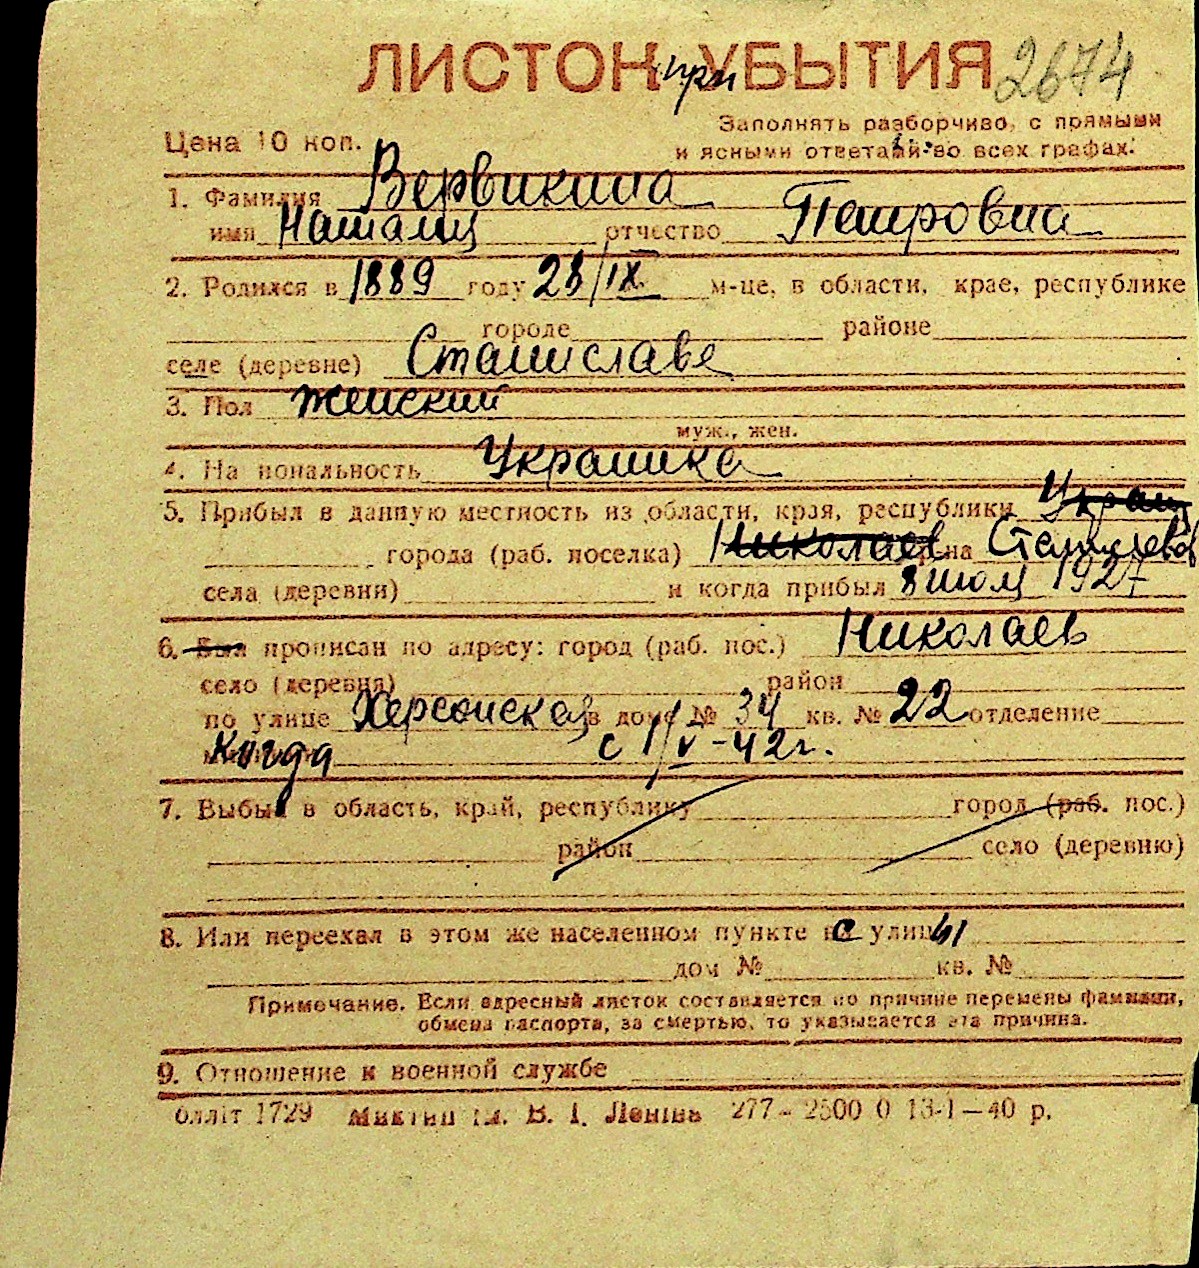 ЛИСТОК при УБЫТИЯ 2674
Заполнять разборчиво, с прямыми
Цена 10 коп.
и ясными ответами во всех графах.
1. Фамилия Вервикина
имя Наталия отчество Петровна
2. Родился в 1889 году 28/IX м-це, в области, крае, республике
городе районе
селе (деревне) Станиславе
3. Пол женский
муж., жен.
4. Национальность Украинка
5. Прибыл в данную местность из области, края, республики Украи
города (раб. поселка) Николаев р-на
села (деревни) и когда прибыл 1927
6. Был прописан по адресу: город (раб. пос.) Николаев
село (деревня) район
по улице Херсонская в доме № 34 кв. № 22 отделение
Когда с 1/V-42г.
7. Выбыл в область, край, республику город (раб. пос.)
район село (деревню)
8. Или переехал в этом же населенном пункте с улицы
дом № кв. №
Примечание. Если адресный листок составляется по причине перемены фамилии,
обмена паспорта, за смертью, то указывается эта причина.
9. Отношение к военной службе
блліт 1729 В. І. Леніна 277-2500 0 13-I-40 р.